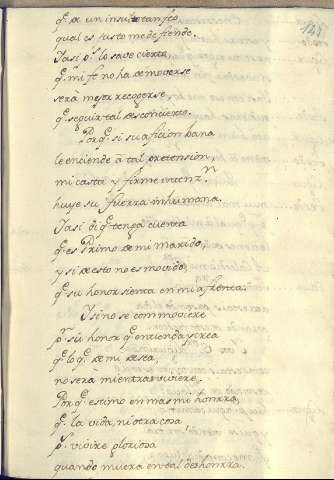 127
qᵉ. de un insulto tan feo
qual es Justo me defiende.
Y asi pˢ. lo save cierto
qᵉ. mi fe no ha de moverse
será mejor recogerse,
qᵉ. seguir tal desconcierto.
Porqᵉ. si su aficion bana
le enciende á tal pretension,
mi casta y firme intenzⁿ.
huye su fuerza inhumana.
Y asi di qᵉ. tenga cuenta
qᵉ. es Primo de mi marido,
y si de esto no es movido,
qᵉ. su honor sienta en mi afrenta.
Y si no se commoviere
pʳ. su honor qᵉ. entienda y sepa
qᵉ. lo qᵉ. de mi desea,
no será mientras viviere.
Porqᵉ. estimo en mas mi honrra,
qᵉ. la vida, ni otra cosa
pˢ. viviré gloriosa
quando muera en tal deshonrra.